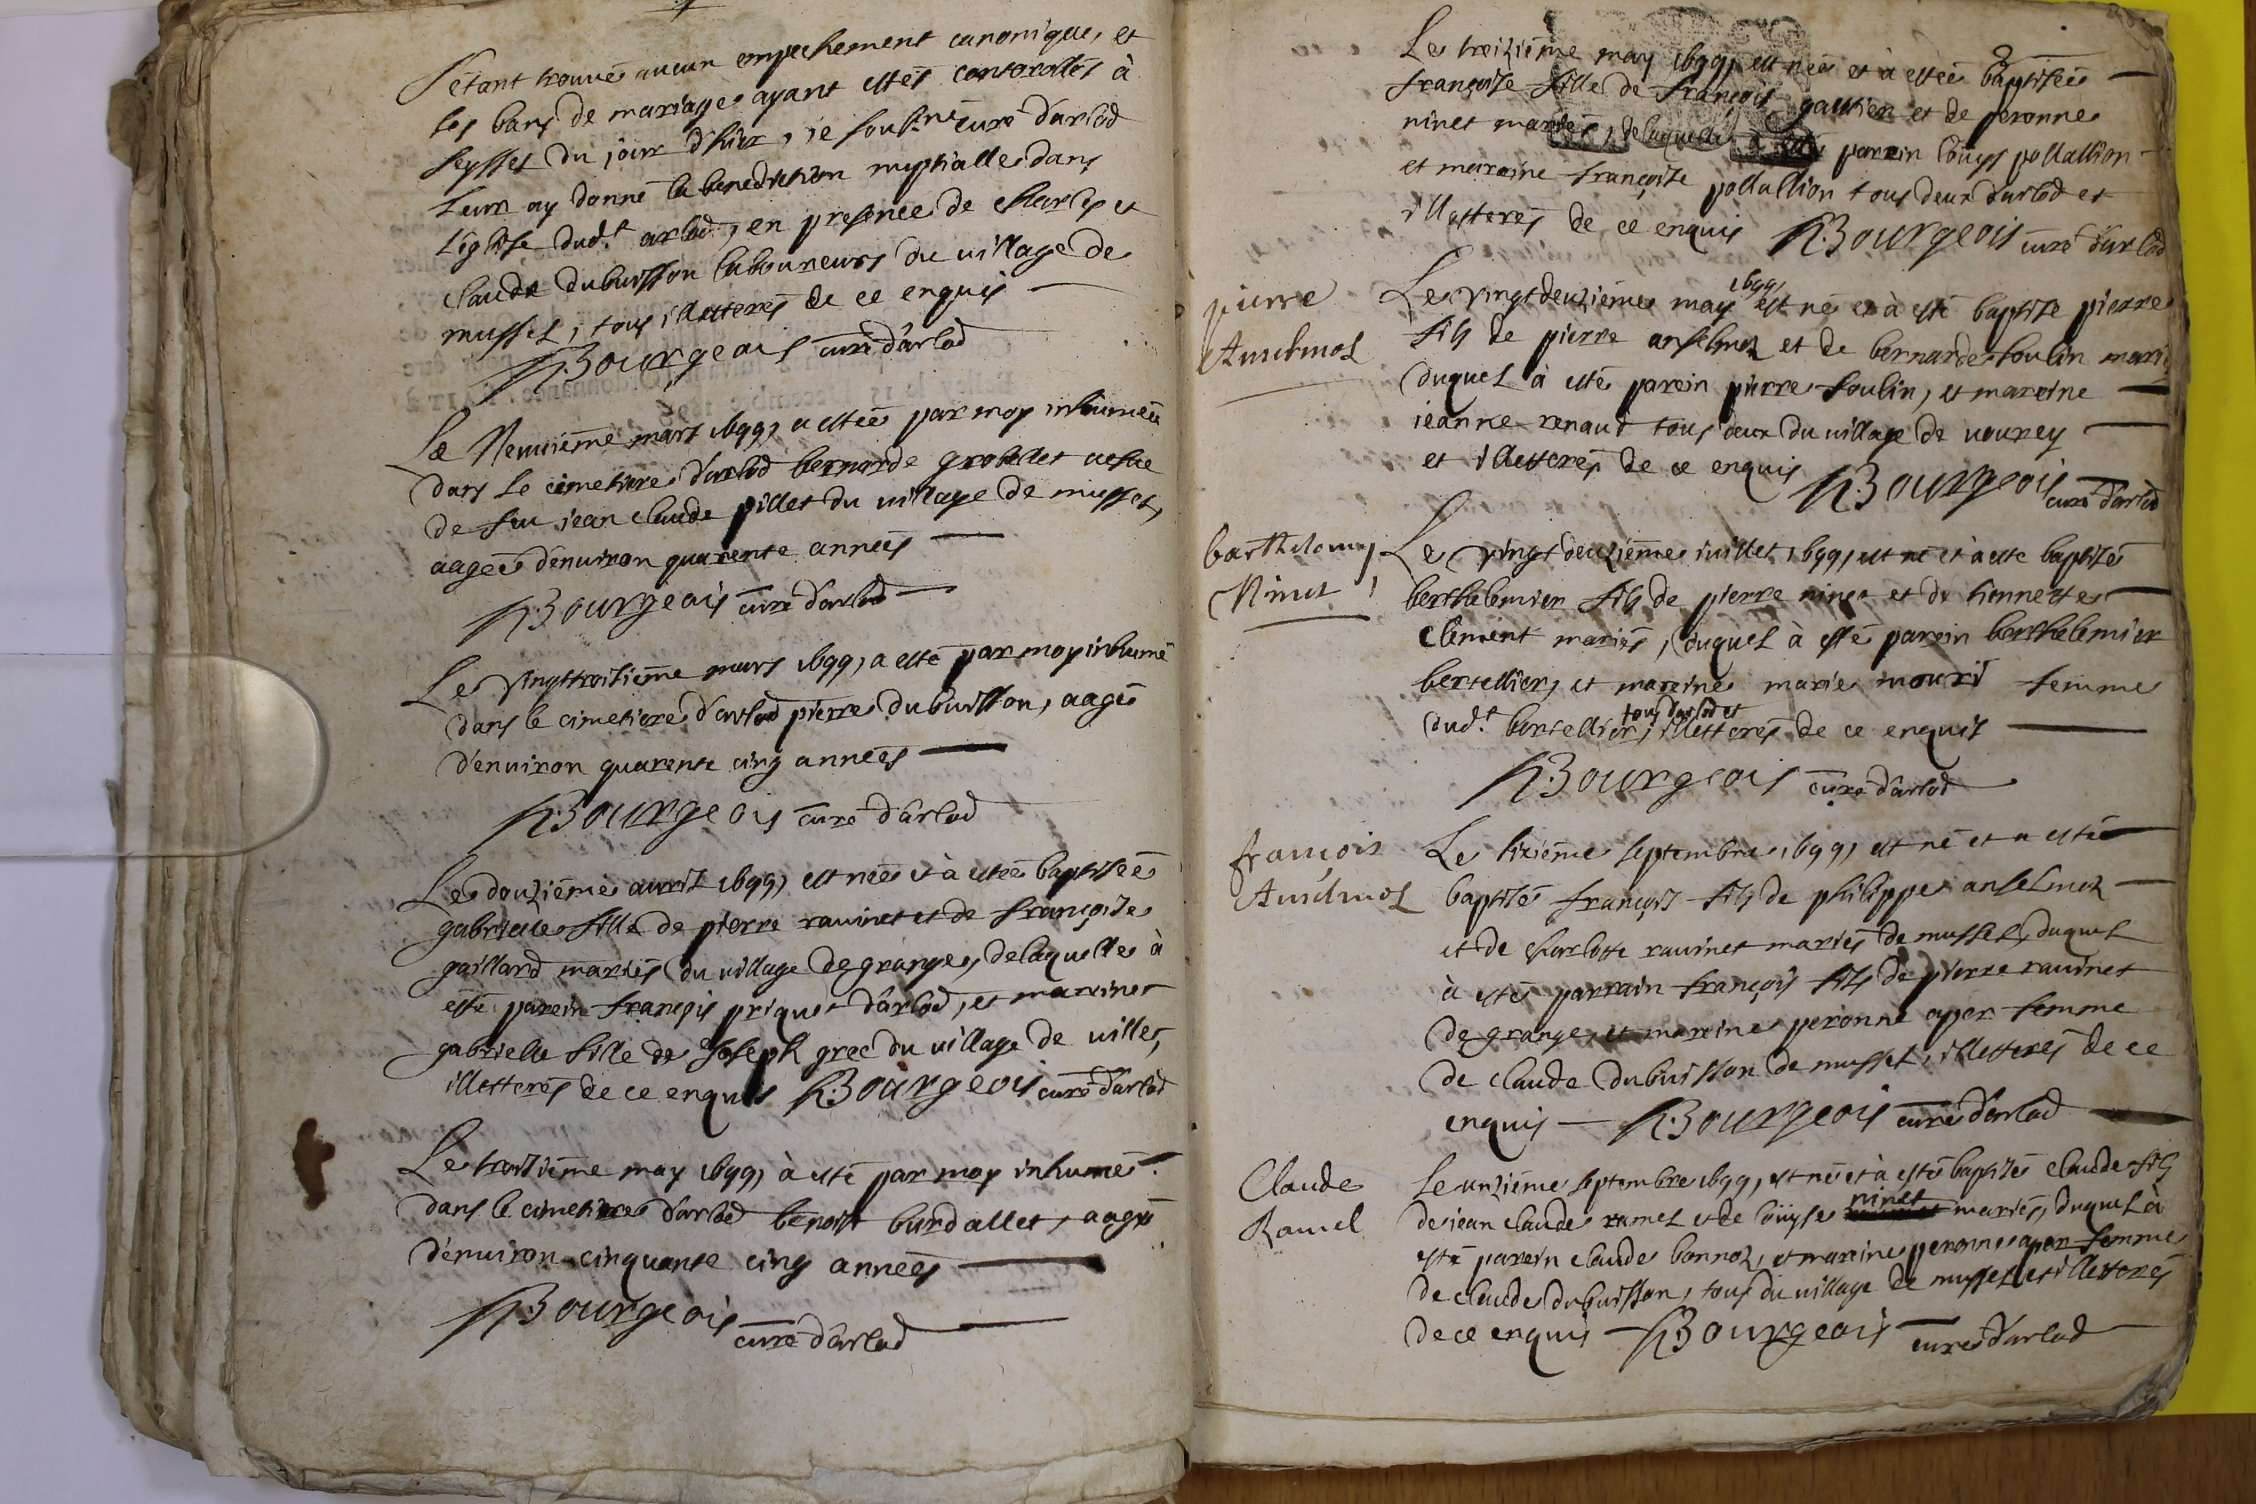 s'étant trouvé aucun empechement canonique, et
les bans de mariage ayant estés controollés à
seyssel du jour d'hier, ie soub.né curé d'arlod
leur ay donné la benediction nuptialle dans
l'eglise dud.t arlod, en presence de charles et
claude dubuisson laboureurs du village de
mussel, tous illetterés de ce enquis
Bourgeois curé d'arlod
Le Neuviéme mars 1699, a estée par moy inhumée
dans le cimetiere d'arlod bernarde grobellet vefve
de feu jean claude pillet du village de mussel,
aagée d'environ quarente années
Bourgeois curé d'arlod
Le vingttroisiéme mars 1699, a esté par moy inhumé
dans le cimetiere d'arlod pierre dubuisson, aagé
d'environ quarente cinq années
Bourgeois curé d'arlod
Le douziéme avril 1699, est née et à estée baptisée
gabrielle fille de pierre ravinet et de françoise
gaillard mariés du village de grange, delaquelle à
esté parein françois priquet d'arlod, et mareine
gabrielle fille de Joseph grec du village de ville,
illetterés de ce enquis Bourgeois curé d'arlod
Le troisiéme may 1699, à esté par moy inhumé
dans le cimetiere d'arlod benoist burdallet, aagé
d'environ cinquante cinq années
Bourgeois curé d'arlod
Le treiziéme may 1699, est née et à estée baptisée
françoise fille de françois gautier et de peronne
ninet mariés, delaquelle à esté parein louys pollallion
et mareine françoise pollallion tous deux d'arlod et
illetterés de ce enquis Bourgeois curé d'arlod
pierre
Anselmoz
1699,
Le vingtdeuziéme may est né et à esté baptisé pierre
fils de pierre anselmoz et de bernarde soulin mariés
duquel à esté parein pierre soulin, et mareine
jeanne renaud tous deux du village de vourey
et illetterés de ce enquis Bourgeois curé d'arlod
barthelemy
Ninet
Le vingtdeuziéme juillet 1699, est né et à esté baptisé
berthelemier fils de pierre ninet et de thiennette
clement mariés, duquel à esté parein berthelemier
bertellier, et mareine marie mouri femme
tous d'arlod et
dud.t bertellier, illetterés de ce enquis
Bourgeois curé d'arlod
françois
Anselmoz
Le sixiéme septembre 1699, est né et a esté
baptisé françois fils de philippe anselmoz
et de charlotte ravinet mariés de mussel, duquel
à esté parrain françois fils de pierre ravinet
de grange, et mareine peronne aper femme
de claude dubuisson de mussel, illetterés de ce
enquis Bourgeois curé d'arlod
Claude
Ramel
Le unziéme septembre 1699, est né et à esté baptisé claude fils
ninet
de jean claude ramel et de louyse mariés, duquel à
esté parein claude bonnoz, et mareine peronne aper femme
de claude dubuisson, tous du village de mussel et illetterés
de ce enquis Bourgeois curé d'arlod